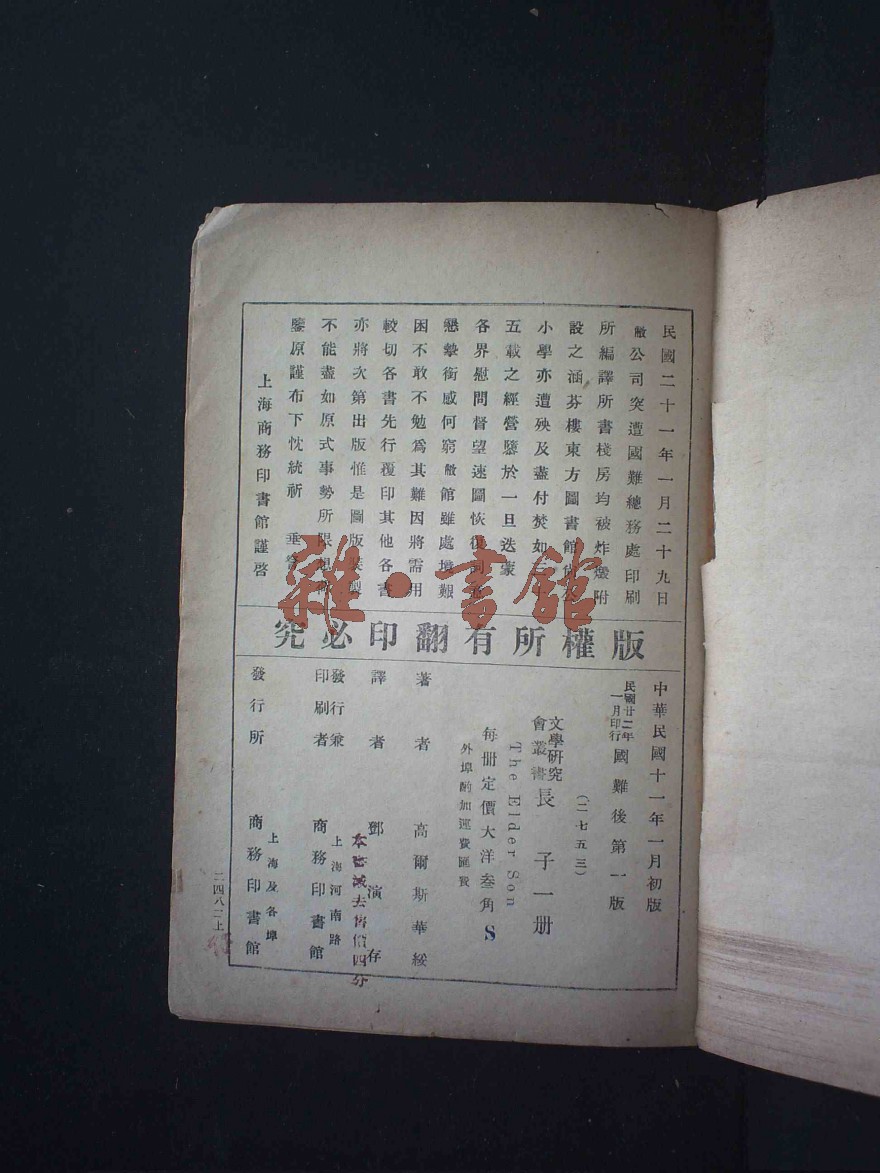 民國二十一年一月二十九日
敝公司突遭國難總務處印刷
所編譯所書棧房均被炸燬附
設之涵芬樓東方圖書館尚公
小學亦遭殃及盡付焚如三十
五載之經營隳於一旦迭蒙
各界慰問督望速圖恢復詞意
懇摯銜感何窮敝館雖處境艱
困不敢不勉爲其難因將需用
較切各書先行覆印其他各書
亦將次第出版惟是圖版裝製
不能盡如原式事勢所限想
鑒原謹布下忱統祈 垂詧
上海商務印書館謹啓
版權所有翻印必究
中華民國十一年一月初版
民國廿二年一月印行 國難後第一版
(二七五三)
文學研究會叢書 長子一册
The Elder Son
每册定價大洋叁角 S
外埠酌加運費匯費
著者 高爾斯華綏
譯者 鄧演存
本書減去售價四分
發行兼印刷者 上海河南路 商務印書館
發行所 上海及各埠 商務印書館
二四八二上
雜·書館